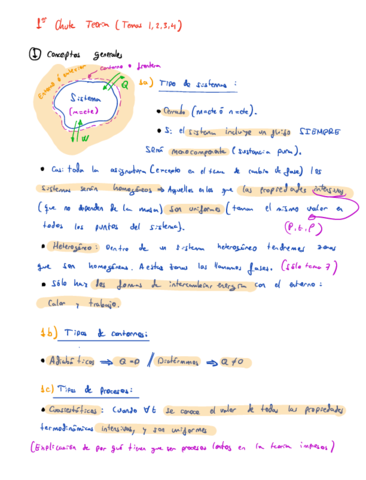 1er Chute Teoría (Temas 1,2,3,4)
① Conceptos generales
Entorno o exterior
contorno o frontera
Sistema
(m=cte)
Q
W
1a) Tipo de sistemas:
• Cerrado (m=cte ó ṁ=cte).
• Si el sistema incluye un fluido SIEMPRE
SERÁ monocomponente (sustancia pura).
• Casi toda la asignatura (excepto en el tema de cambio de fase) los
sistemas serán homogéneos ⇒ Aquellos en los que las propiedades intensivas
(que no dependen de la masa) son uniformes (toman el mismo valor en
todos los puntos del sistema).
(P, t, ρ)
• Heterogéneo: Dentro de un sistema heterogéneo tendremos zonas
que son homogéneas. A estas zonas las llamamos fases. (Sólo tema 7)
• Sólo hay dos formas de intercambiar energía con el entorno:
Calor y trabajo.
1b) Tipos de contornos:
• Adiabáticos ⇒ Q=0 // Diatérmanos ⇒ Q≠0
1c) Tipos de procesos:
• Cuasiestáticos: Cuando ∀t se conoce el valor de todas las propiedades
termodinámicas intensivas, y son uniformes
(Explicación de por qué tienen que ser procesos lentos en la teoría impresa)